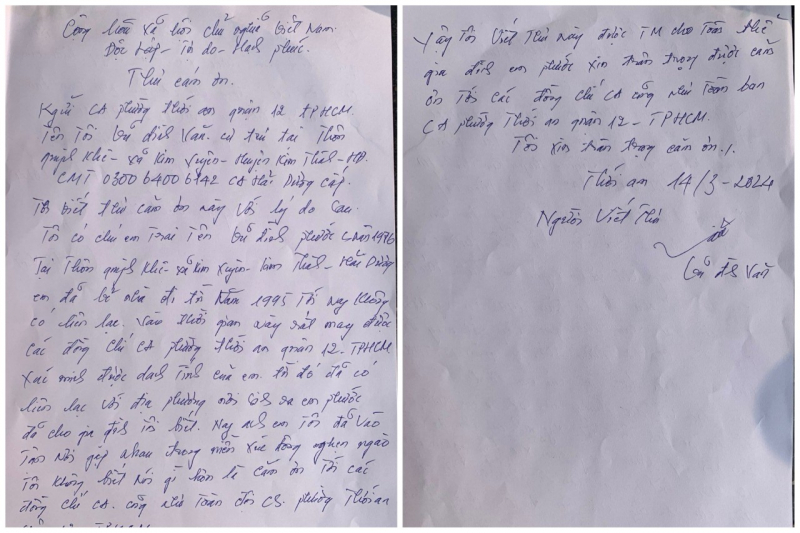 Cộng hòa xã hội chủ nghĩa Việt Nam
Độc Lập - Tự do - Hạnh phúc.
Thư cám ơn.
Kgửi CA phường thới an quận 12 TPHCM.
Tên Tôi Vũ đình Văn. cư trú tại Thôn
quỳnh khê - xã kim xuyên - Huyện kim Thành - HD.
CMT 030064006142 CA Hải Dương cấp.
Tôi viết thư cảm ơn này Với lý do sau.
Tôi có chú em Trai Tên Vũ đình phước 1976
Tại Thôn quỳnh khê - xã kim xuyên - kim Thành - Hải Dương
em đã bỏ nhà đi từ Năm 1995 Tới nay không
có liên lạc. Vào thời gian này rất may được
các đồng chí CA phường thới an quận 12 - TPHCM
xác minh được danh Tính của em. từ đó đã có
liên lạc với địa phương nơi sinh ra em phước
để cho gia đình Tôi biết. Nay anh em Tôi đã Vào
Tận Nơi gặp nhau trong niềm xúc động nghẹn ngào
Tôi không biết Nói gì hơn là cảm ơn Tới các
đồng chí CA. cũng như Toàn đội CS. phường Thới an
TPHCM
Vậy Tôi Viết Thư này được TM cho Toàn thể
gia đình em phước xin trân trọng được cảm
ơn Tới các đồng chí CA cũng như Toàn ban
CA phường Thới an quận 12 - TPHCM.
Tôi xin trân trọng cảm ơn.!.
Thới an 14/3-2024
Người Viết Thư
Vũ đình Văn